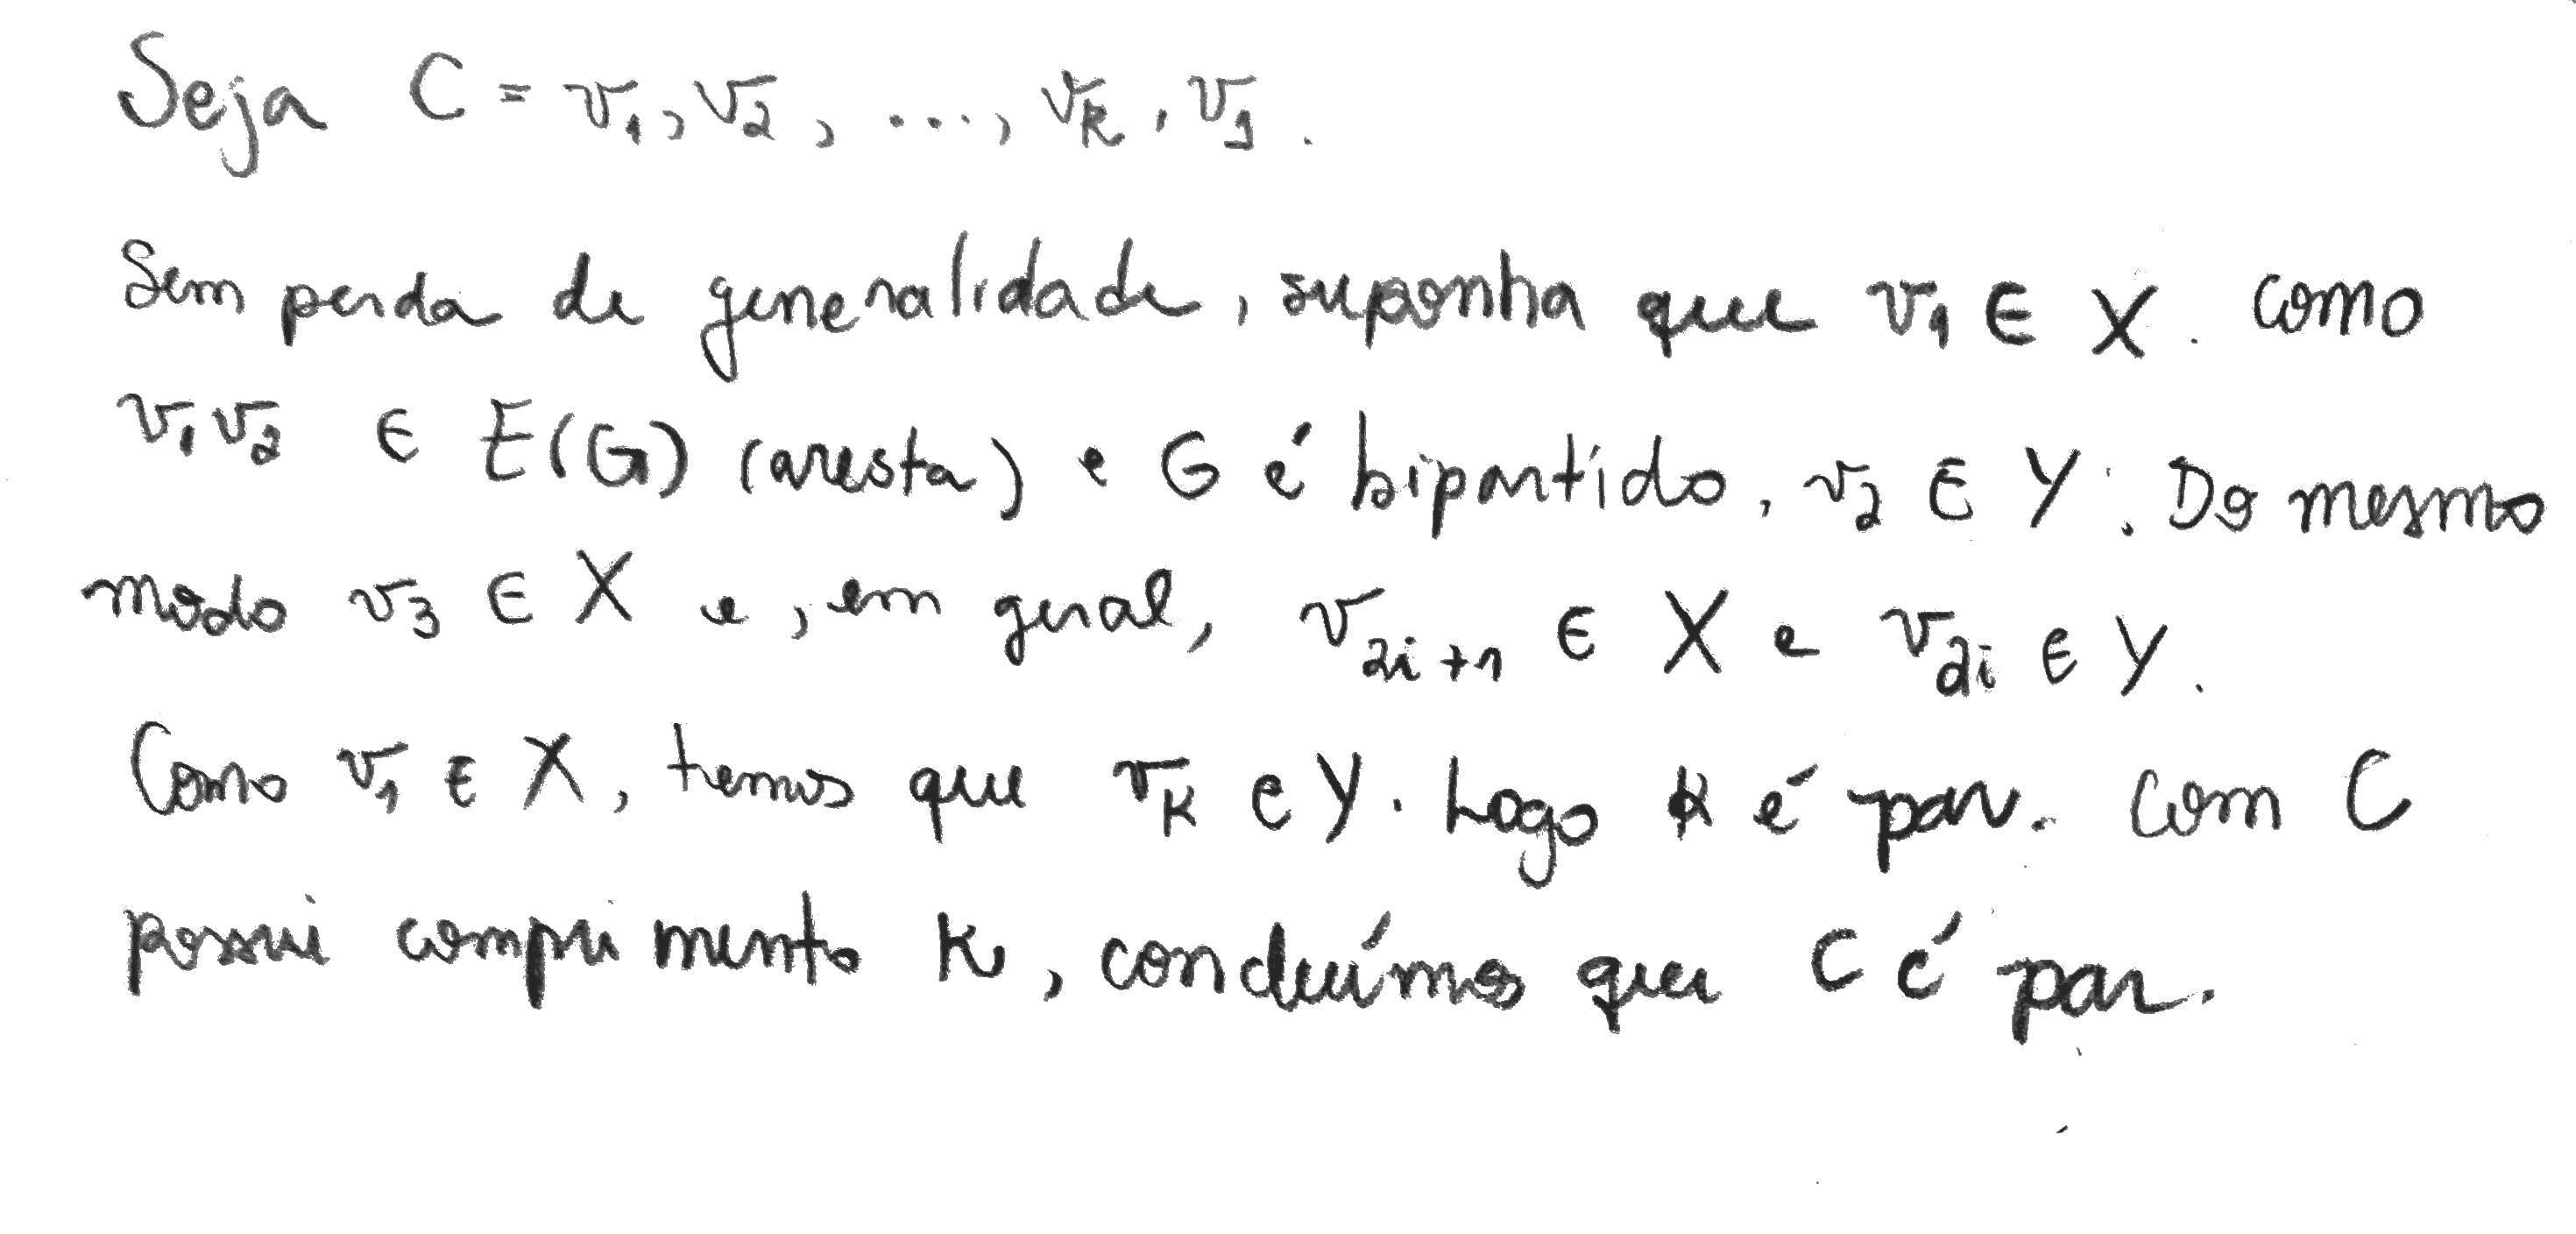 Seja C = v₁, v₂, ..., vₖ, v₁.
Sem perda de generalidade, suponha que v₁ ∈ X. como
v₁v₂ ∈ E(G) (aresta) e G é bipartido, v₂ ∈ Y. Do mesmo
modo v₃ ∈ X e, em geral, v₂ᵢ₊₁ ∈ X e v₂ᵢ ∈ Y.
Como v₁ ∈ X, temos que vₖ ∈ Y. Logo k é par. Com C
possui comprimento k, concluímos que C é par.